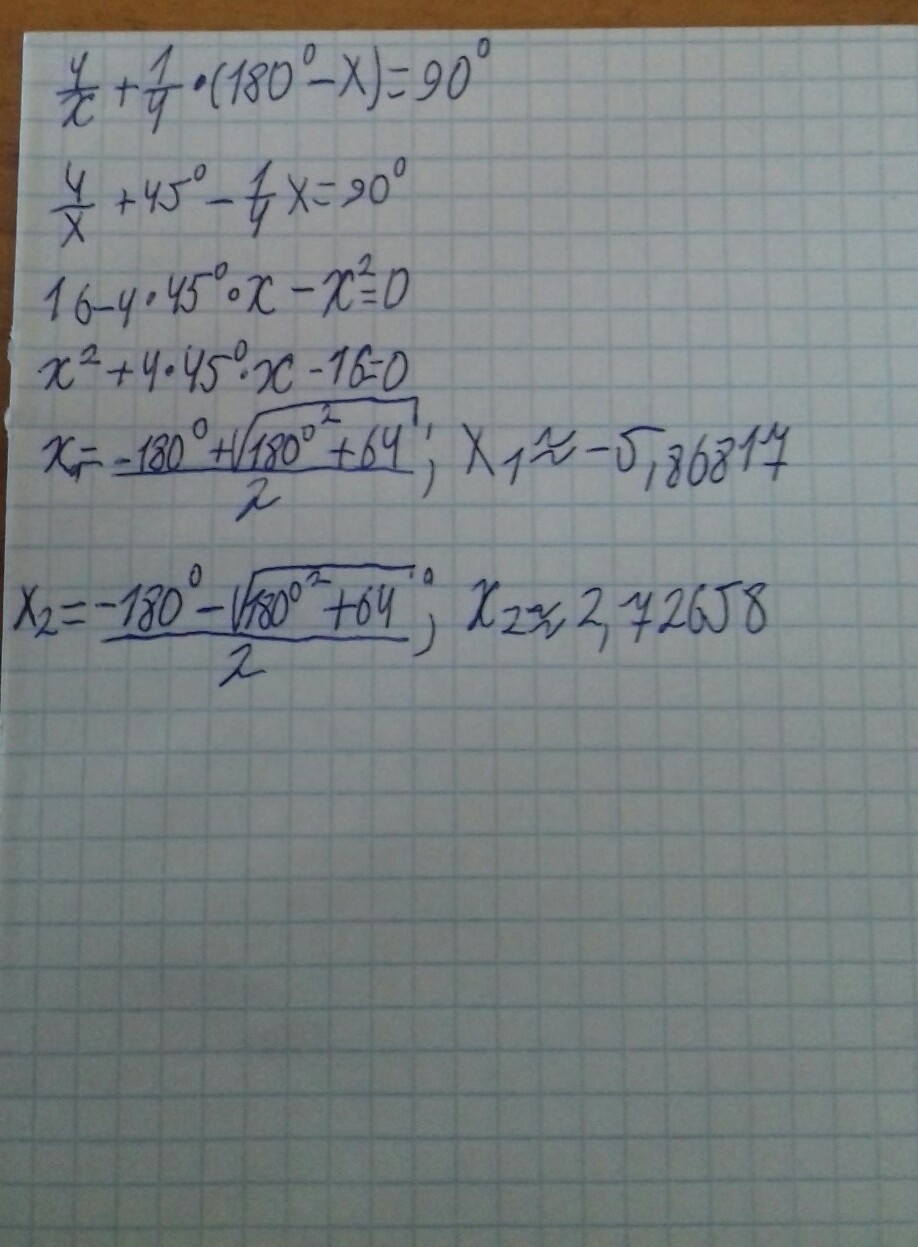 4/x + 1/4 · (180° - x) = 90°
4/x + 45° - 1/4 x = 90°
16 - 4 · 45° · x - x² = 0
x² + 4 · 45° · x - 16 = 0
x₁ = (-180° + √(180°² + 64))/2 ; x₁ ≈ -5,86817
x₂ = (-180° - √(180°² + 64))/2 ; x₂ ≈ 2,72658